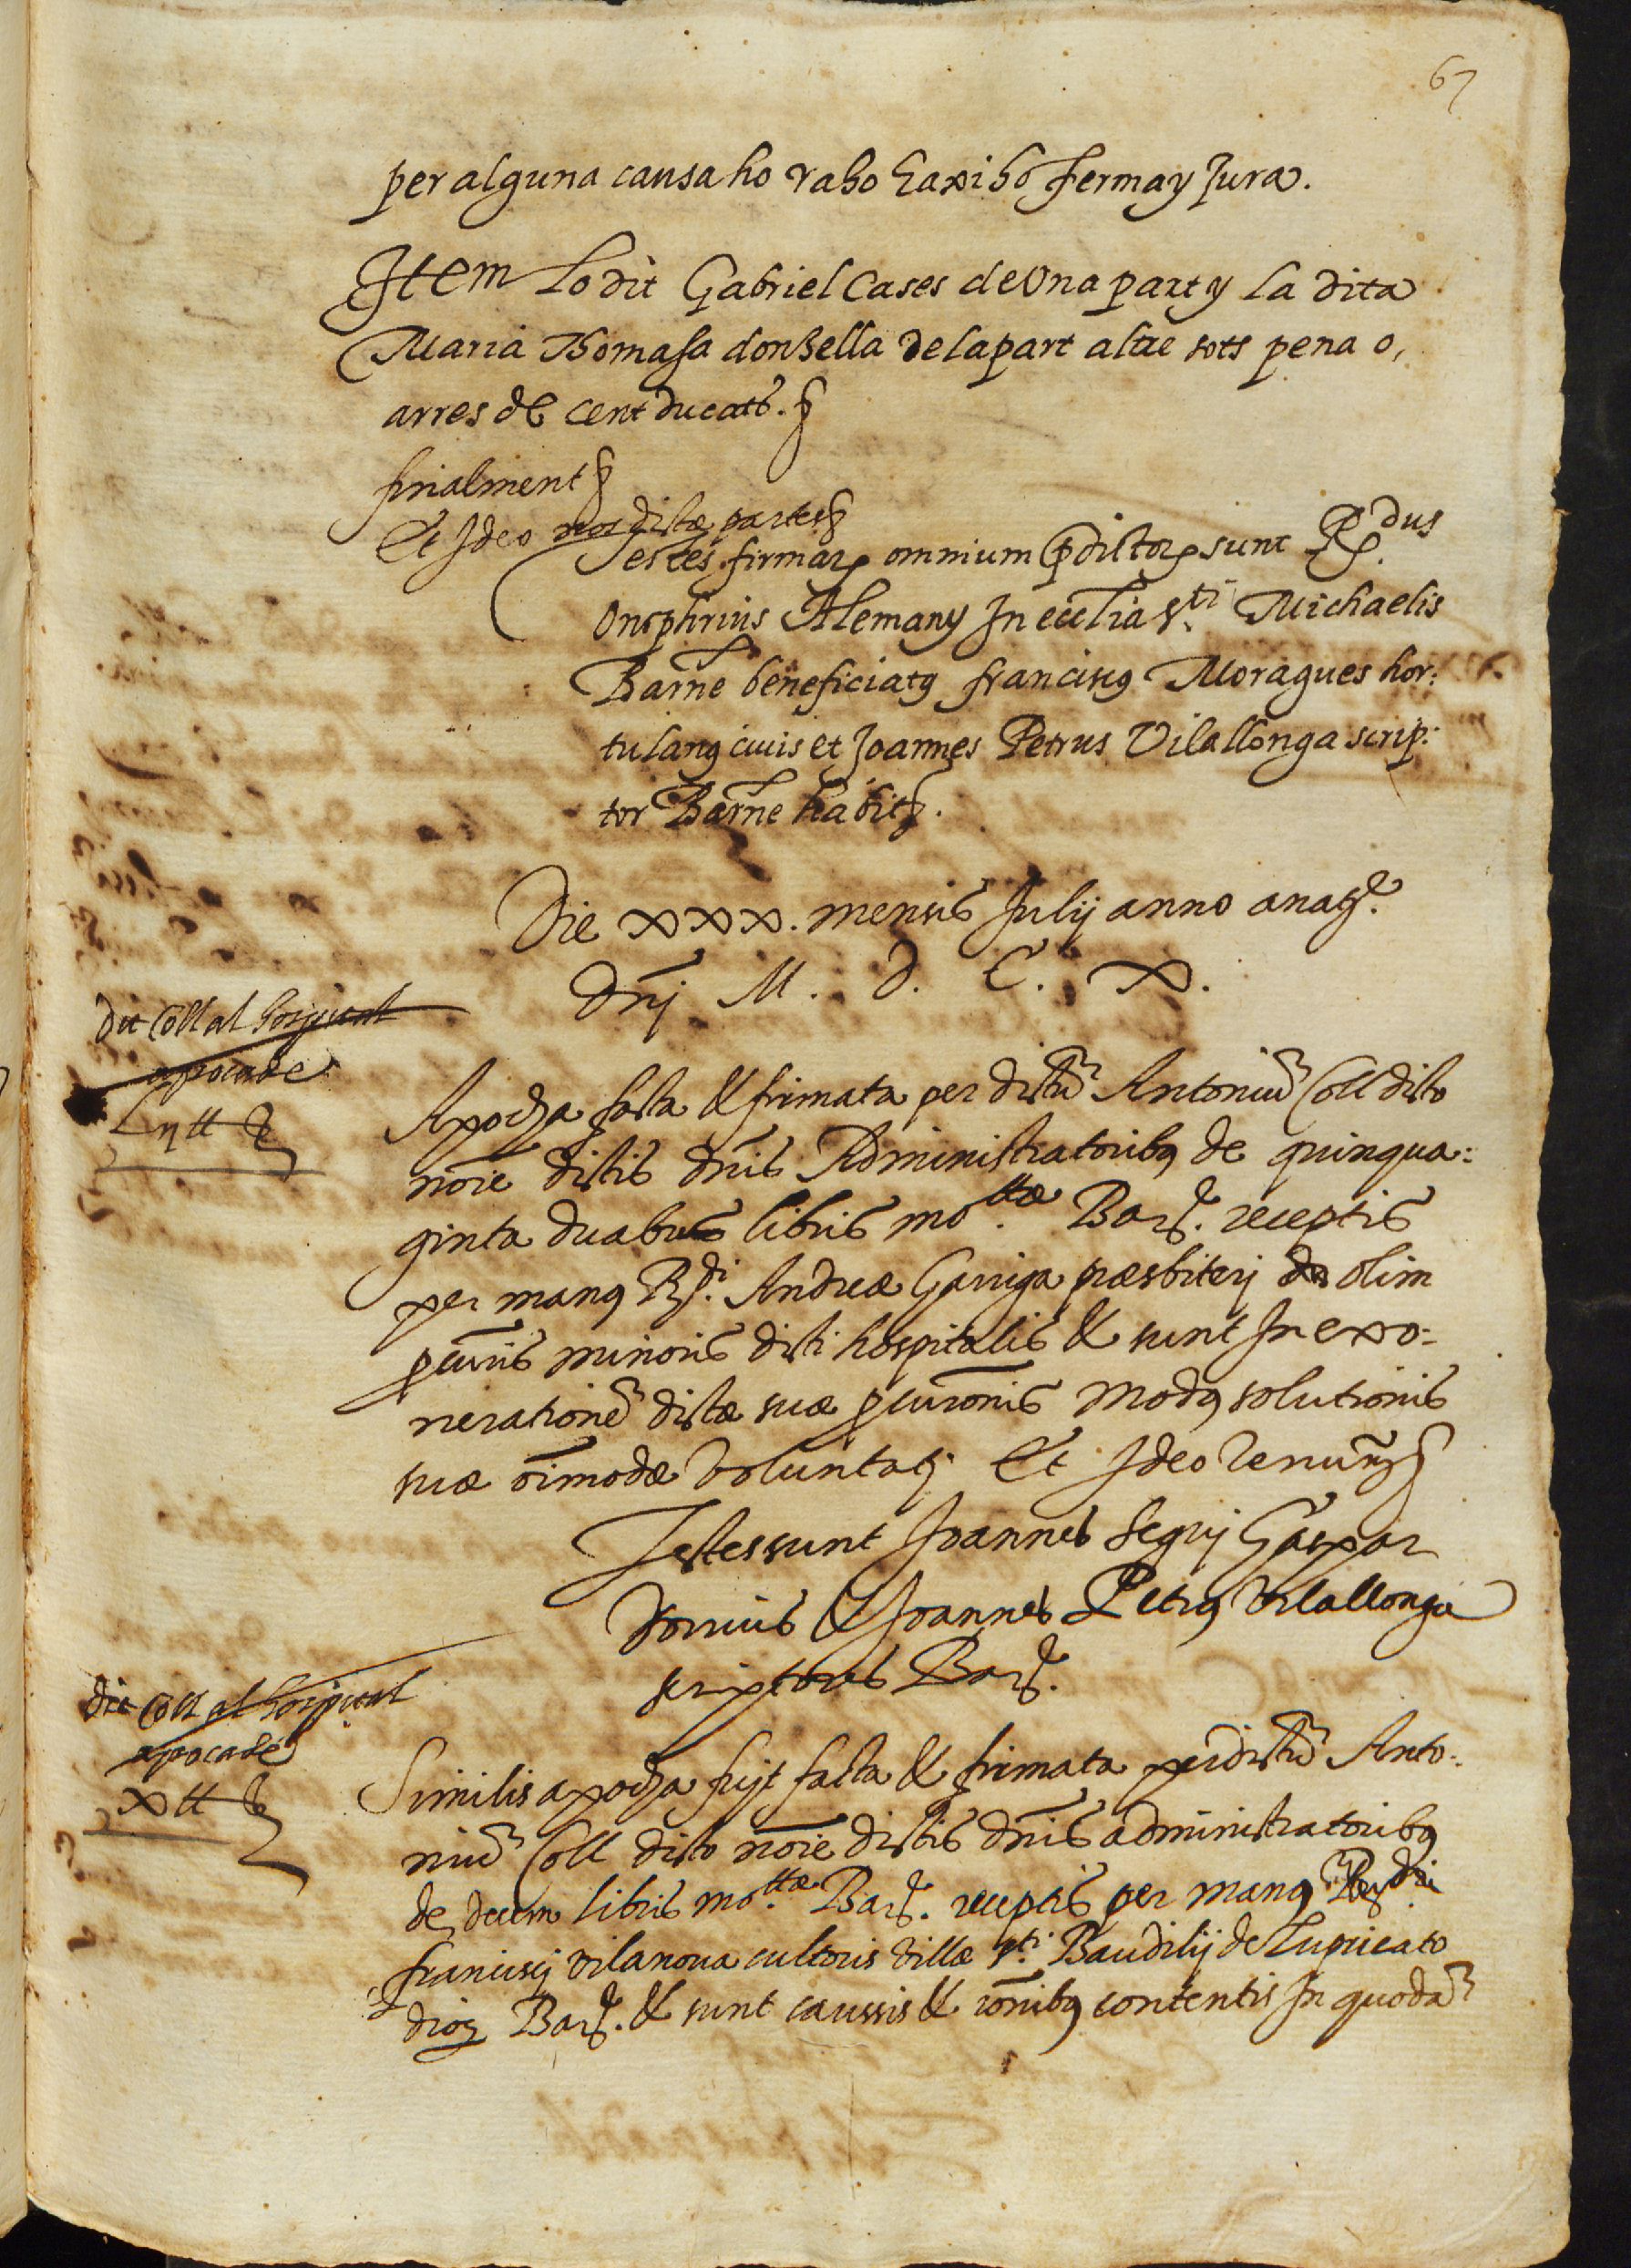 67
per alguna causa ho raho haxi ho ferma y Jura.
Item lo dit Gabriel Cases de Una part y la dita
Maria Thomasa donsella de la part altre sots pena o,
arres de cent ducats.
finalment
Et Ideo nos dictæ partes
Testes firmarȩ omnium p̃dictorȩ sunt Rd.dus
Onophrius Alemany In ecclia s.ti Michaelis
Barn̄e beneficiatꝯ franciscꝯ Moragues hor:
tulanꝯ ciuis et Joannes Petrus Vilallonga scrip:
tor Barn̄e habit.
Die xxx. mensis Julij anno anat.
Dn̄j M. D. C. X.
dit Coll al hospital
apoca de
Lij ll
Apocha facta & firmata per dictū Antoniū Coll dicto
nōie dictis dn̄is Administratoribꝯ de quinqua:
ginta duabus libris mo.ttæ Bar. receptis
per manꝯ Rd.i Andreæ Garriga præsbiterj olim
ꝓcuris minoris dicti hospitalis & sunt In exo:
nerationē dictæ suæ ꝓcurōnis Modꝯ solutionis
suæ oīmodæ voluntatj Et Ideo Renun
Testes sunt Joannes Seguj Gaspar
& Joannes Petrꝯ Vilallonga
scriptores Bar.
dit Coll al hospital
apoca de
x ll
Similis apocha fuit facta & firmata per dictū Anto:
niū Coll dicto nōie dictis dn̄is administratoribꝯ
de decem libris mo.ttæ Bar. receptis per manꝯ
francisci Vilanoua cultoris Villæ s.ti Baudilij de Lupricato
dioc Bar. & sunt caussis & rōnibꝯ contentis In quodā